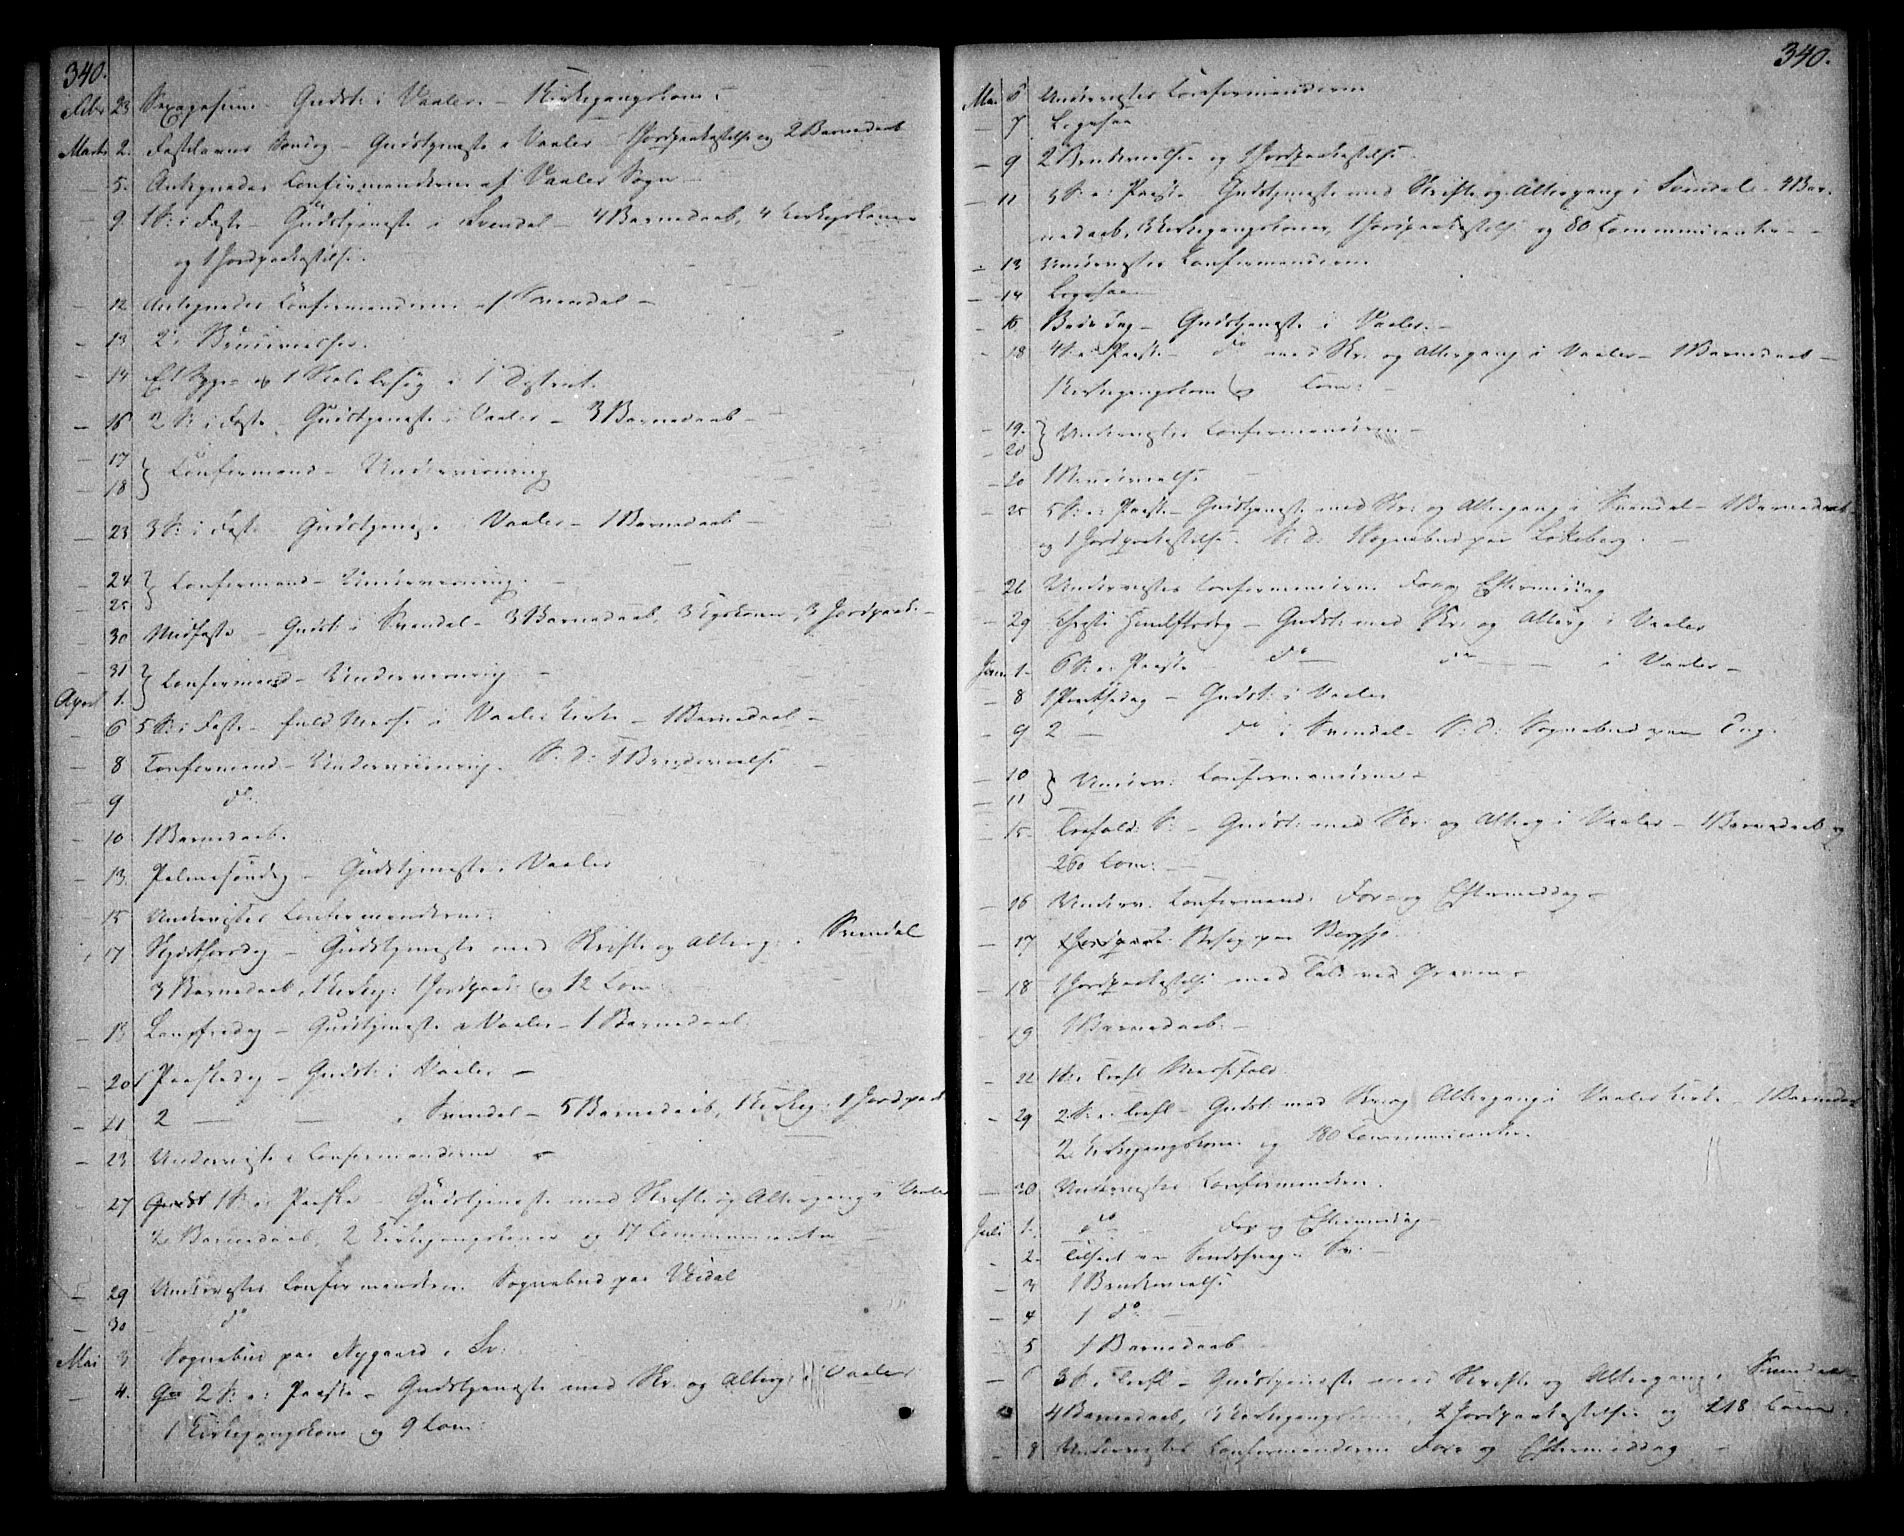 340.
Febr 23 Sexagesima - Gudstj: i Vaaler - 1 Kirkegangskone
Marts 2. Fastelavns Søndag - Gudstjeneste i Vaaler - 1 Jordpaakastelse og 2 Barnedaab
- 5. Antegnedes Confirmanderne af Vaaler Sogn -
- 9 1 S: i Faste - Gudstjeneste i Svendal - 4 Barnedaab, 4 Kirkegskoner
og 1 Jordpaakastelse.
- 12 Antegnedes Confirmanderne af Svendal -
- 13 2 Brudevielser.
- 14 og 1 Skolebesøg i 1 District.
- 16 2 S: i Faste - Gudstjeneste i Vaaler - 3 Barnedaab -
- 17
- 18 } Confirmand - Underviisning
- 23 3 S: i Faste Gudstjeneste i Vaaler - 1 Barnedaab -
- 24
- 25 } Confirmand - Underviisning. -
- 30 Midfaste - Gudst: i Svendal - 3 Barnedaab, 3 Kgskoner, 3 Jordpaak: -
- 31
April 1. } Confirmand - Underviisning -
- 6 5 S: i Faste - fuld Messe i Vaaler Kirke - 1 Barnedaab -
- 8 Confirmand - Underviisning. S. D: 1 Brudevielse -
- 9 do.
- 10 1 Barnedaab.
- 13. Palmesøndag - Gudstjeneste i Vaaler
- 15 Underviistes Confirmanderne.
- 17 Skjærthorsdag - Gudstjeneste med Skrifte og Alterg: i Svendal
3 Barnedaab, 1 Kirkeg: 1 Jordpaak: og 12 Com:
- 18 Langfredag - Gudstjeneste i Vaaler - 1 Barnedaab.
- 20 1 Paaskedag - Gudst: i Vaaler -
- 21 2 — — i Svendal - 5 Barnedaab, 1 Kirkeg: 1 Jordpaak
- 23 Underviiste Confirmanderne -
- 27 Gudst 1 S: e: Paaske - Gudstjeneste med Skrifte og Altergang i Vaaler
2 Barnedaab, 2 Kirkegangskoner og 17 Communicanter -
- 29 Underviistes Confirmanderne. Sognebud paa
- 30 do
Mai 3 Sognebud paa Nygaard i Sv:
- 4. Gu 2 S: e: Paaske - Gudstjeneste med Skr. og Alterg: i Vaaler
1 Kirkegangskone og 9 Com:
340.
Mai 6 Underviistes Confirmanderne
- 7 Ligesaa
- 9 2 Brudevielser og 1 Jordpaakastelse.
- 11 3 S: e: Paaske Gudstjeneste med Skrifte og Altergang i Svendal - 4 Bar-
nedaab, 3 Kirkegangskoner, 1 Jordpaakastelse og 80 Communicanter -
- 13 Underviistes Confirmanderne
- 14 Ligesaa
- 16 Bededag - Gudstjeneste i Vaaler. -
- 18 4 S: e: Paaske - do med Skr. og Altergang i Vaaler - 1 Barnedaab -
1 Kirkegangskone og Com: -
- 19.
- 20 } Underviistes Confirmanderne -
- 20 1 Brudevielse
- 25 5 S: e: Paaske - Gudstjeneste med Skr. og Altergang i Svendal - 1 Barnedaab
og 1 Jordpaakastelse - S. D: 1 Sognebud paa Lokeberg. -
- 26 Underviistes Confirmanderne For og Eftermiddag
- 29 Christi Himelftsdag - Gudst: med Skr: og Alterg i Vaaler
Juni 1. 6 S: e: Paaske - do — do — i Vaaler -
- 8 1 Pintsedag - Gudst: i Vaaler
- 9 2 — do i Svendal - S: D: Sognebud paa Eng.
- 10
- 11 } Underv: Confirmanderne -
- 15 Trefold: S: - Gudst: med Skr: og Alterg i Vaaler - 1 Barnedaab og
260 Com: -
- 16 Underv: Confirmand: For og Eftermiddag -
- 17 Besøg paa Bergsjø.
- 18 1 Jordpaakastelse med Tale ved Graven -
- 19 1 Barnedaab. -
- 22 1 S: e: Trefl: Messefald.
- 29 2 S: e: Trefl - Gudst: med Skr: og Altergang i Vaaler Kirke - 1 Barnedaab
2 Kirkegangskoner og 180 Communicanter.
- 30 Underviistes Confirmanderne.
Juli 1. do — For og Eftermiddag -
- 2. i Sv: -
- 3 1 Brudevielse
- 4 1 do -
5 1 Barnedaab
- 6 3 S: e Trefl - Gudstjeneste med Skrifte og Altergang i Svendal -
4 Barnedaab, 3 Kirkegangskoner, 2 Jordpaakastelser og 218 Com:
- 8 Underviistes Confirmanderne For og Eftermiddag -